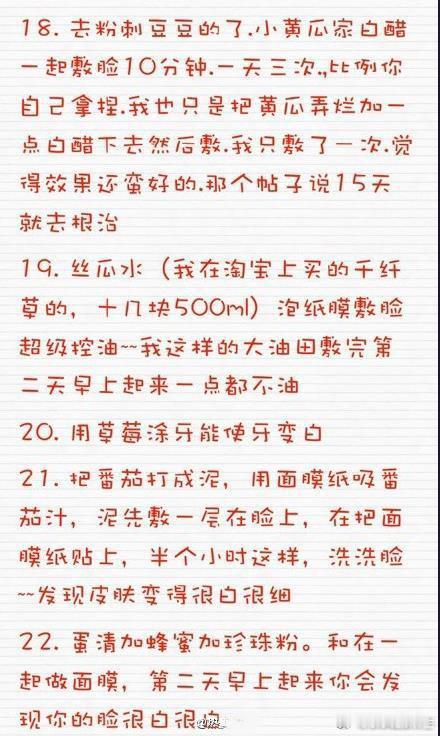 18. 去粉刺豆豆的了.小黄瓜家白醋
一起敷脸10分钟.一天三次.,比例你
自己拿捏.我也只是把黄瓜弄烂加一
点白醋下去然后敷.我只敷了一次.觉
得效果还蛮好的.那个帖子说15天
就去根治
19. 丝瓜水（我在淘宝上买的千纤
草的，十几块500ml）泡纸膜敷脸
超级控油~~我这样的大油田敷完第
二天早上起来一点都不油
20. 用草莓涂牙能使牙变白
21. 把番茄打成泥，用面膜纸吸番
茄汁，泥先敷一层在脸上，在把面
膜纸贴上，半个小时这样，洗洗脸
~~发现皮肤变得很白很细
22. 蛋清加蜂蜜加珍珠粉。和在一
起做面膜，第二天早上起来你会发
现你的脸很白很白